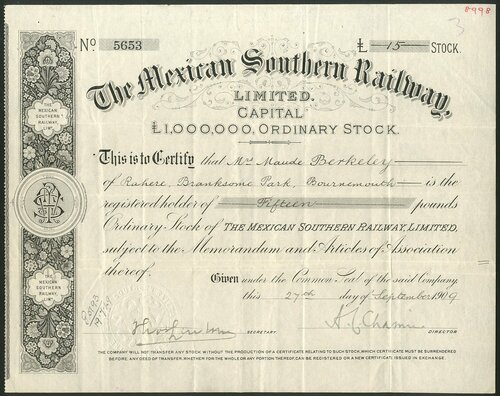 8998
3
No 5653
£ 15 STOCK.
The Mexican Southern Railway,
LIMITED.
CAPITAL
£1,000,000, ORDINARY STOCK.
This is to Certify that Mrs Maude Berkeley
of Rahere, Branksome Park, Bournemouth is the
registered holder of Fifteen pounds
Ordinary Stock of THE MEXICAN SOUTHERN RAILWAY, LIMITED,
subject to the Memorandum and Articles of Association
thereof.
Given under the Common Seal of the said Company,
this 27th day of September 1909
SECRETARY
DIRECTOR
THE COMPANY WILL NOT TRANSFER ANY STOCK WITHOUT THE PRODUCTION OF A CERTIFICATE RELATING TO SUCH STOCK, WHICH CERTIFICATE MUST BE SURRENDERED
BEFORE ANY DEED OF TRANSFER, WHETHER FOR THE WHOLE OR ANY PORTION THEREOF, CAN BE REGISTERED OR A NEW CERTIFICATE ISSUED IN EXCHANGE.
THE
MEXICAN
SOUTHERN
RAILWAY,
LIMD.
THE
MEXICAN
SOUTHERN
RAILWAY
LIMD.